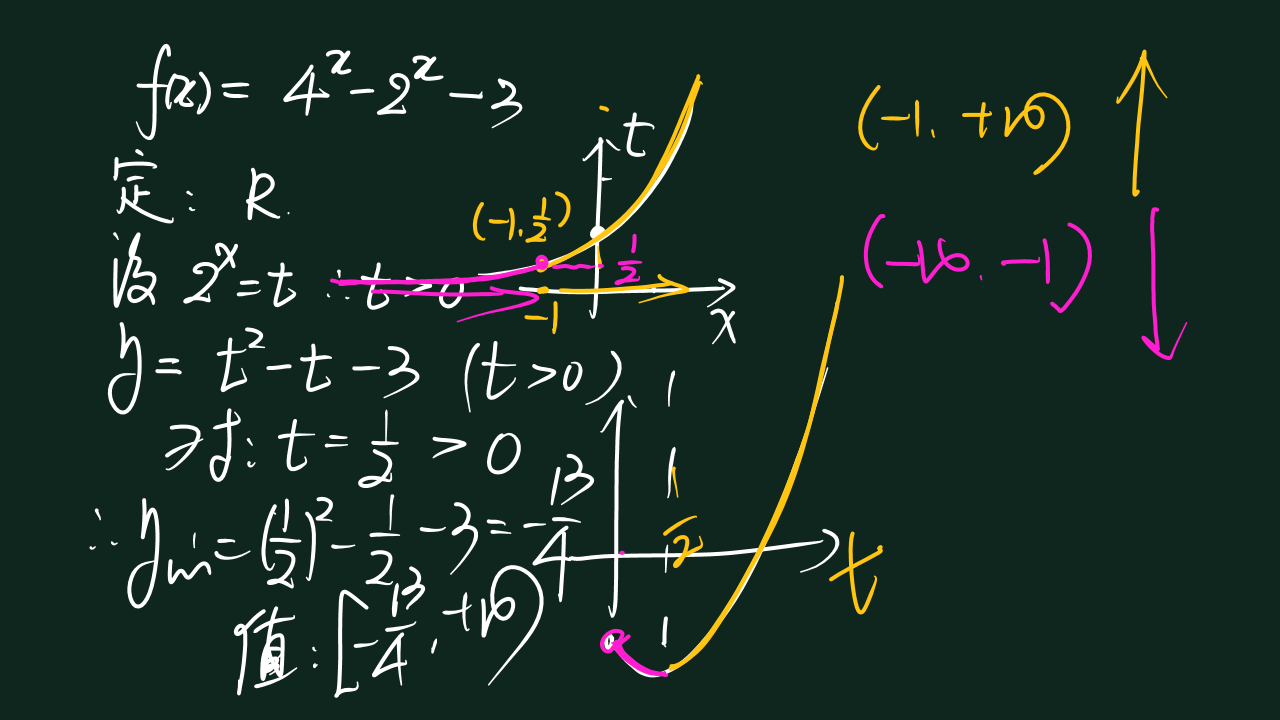 f(x) = 4^x - 2^x - 3
定: R.
设 2^x = t ∴ t > 0
y = t² - t - 3 (t > 0)
对: t = 1/2 > 0
∴ ymin = (1/2)² - 1/2 - 3 = -13/4
值: [-13/4, +∞)
t
(-1, 1/2)
1/2
-1
x
1/2
t
(-1, +∞)
(-∞, -1)